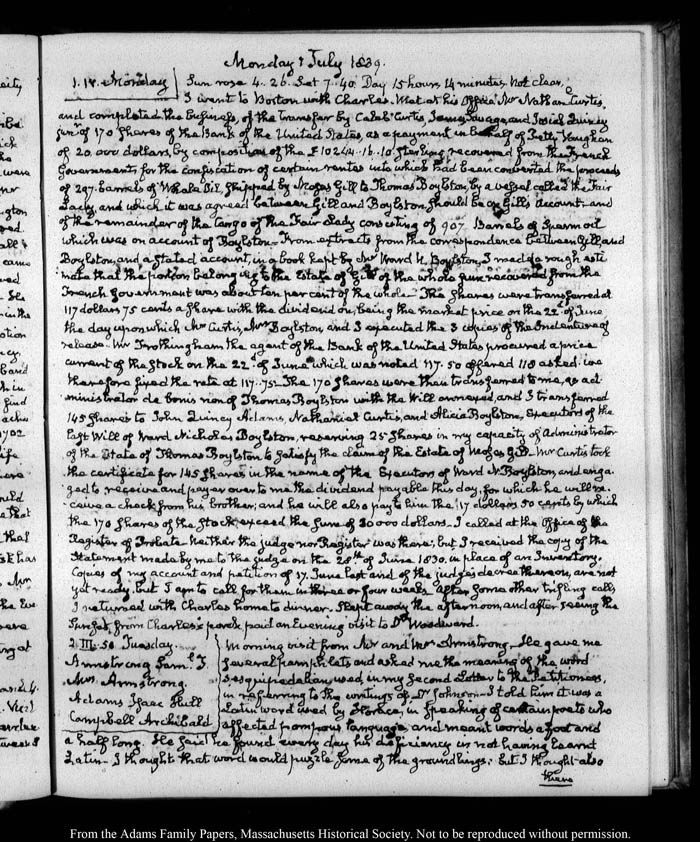 Monday 1 July 1839.
1. IV. Monday Sun rose 4. 26. Set 7. 40. Day 15 hours 14 minutes. Not clear.
I went to Boston with Charles. Met at his Office Mr Nathan Curtis,
and completed the business, of the transfer by Caleb Curtis James Savage, and Josiah Quincy
junr. of 170 shares of the Bank of the United States, as a payment in behalf of Petty Vaughan
of 20.000 dollars, by composition of the £10244. 16. 10. Sterling recovered from the French
Government for the confiscation of certain rentes into which had been converted the proceeds
of 297. barrels of Whale Oil, shipped by Moses Gill to Thomas Boylston, by a vessel called the Fair
Lady, and which it was agreed between Gill and Boylston, should be on Gill's account—and
of the remainder of the cargo of the Fair Lady consisting of 907 Barrels of Sperm oil
which was on account of Boylston—From extracts from the correspondence between Gill and
Boylston, and a stated account, in a book kept by Mr Ward N. Boylston, I made a rough esti
mate that the portion belonging to the Estate of Gill of the whole sum recovered from the
French Government was about ten per cent of the whole—The shares were transferred at
117 dollars 75 cents a share with the dividend on, being the market price on the 22d of June
the day upon which Mr Curtis, Mrs Boylston and I executed the 3 copies of the Indenture of
release. Mr Frothingham the agent of the Bank of the United States procured a price
current of the Stock on the 22d of June which was noted 117. 50 offered 118 asked. we
therefore fixed the rate at 117..75. The 170 shares were then transferred to me, as ad
ministrator de bonis non of Thomas Boylston with the Will annexed, and I transferred
145 shares to John Quincy Adams, Nathaniel Curtis, and Alicia Boylston, Executors of the
last Will of Ward Nicholas Boylston, reserving 25 shares in my capacity of Administrator
of the Estate of Thomas Boylston to satisfy the claim of the Estate of Moses Gill. Mr Curtis took
the certificate for 145 shares in the name of the Executors of Ward N. Boylston, and enga
ged to receive and pay over to me the dividend payable this day, for which he will re
ceive a check from his brother; and he will also pay to him the 17 dollars 50 cents by which
the 170 shares of the Stock exceed the sum of 20000 dollars. I called at the Office of the
Register of Probate. Neither the judge nor Register was there: but I received the copy of the
Statement made by me to the judge on the 28th of June 1830. in place of an Inventory.
Copies of my account and petition of 17. June last and of the judge's decree thereon, are not
yet ready, but I am to call for them in three or four weeks. After some other trifling calls
I returned with Charles home to dinner. Slept away the afternoon, and after seeing the
Sun set, from Charles's porch paid an Evening visit to Dr Woodward.
2. III. 50 Tuesday.
Armstrong Saml. T.
Mrs. Armstrong.
Adams Isaac Hull
Campbell Archibald
Morning visit from Mr and Mrs Armstrong. He gave me
several pamphlets and asked me the meaning of the word
sesquipedalian, used in my second Letter to the Petitioners,
in referring to the writings of Dr Johnson—I told him it was a
Latin word used by Horace, in speaking of certain poets who
affected pompous language, and meant words a foot and
a half long. He said he found every day his deficiency in not having learnt
Latin—I thought that word would puzzle some of the groundlings: but I thought also
there
From the Adams Family Papers, Massachusetts Historical Society. Not to be reproduced without permission.